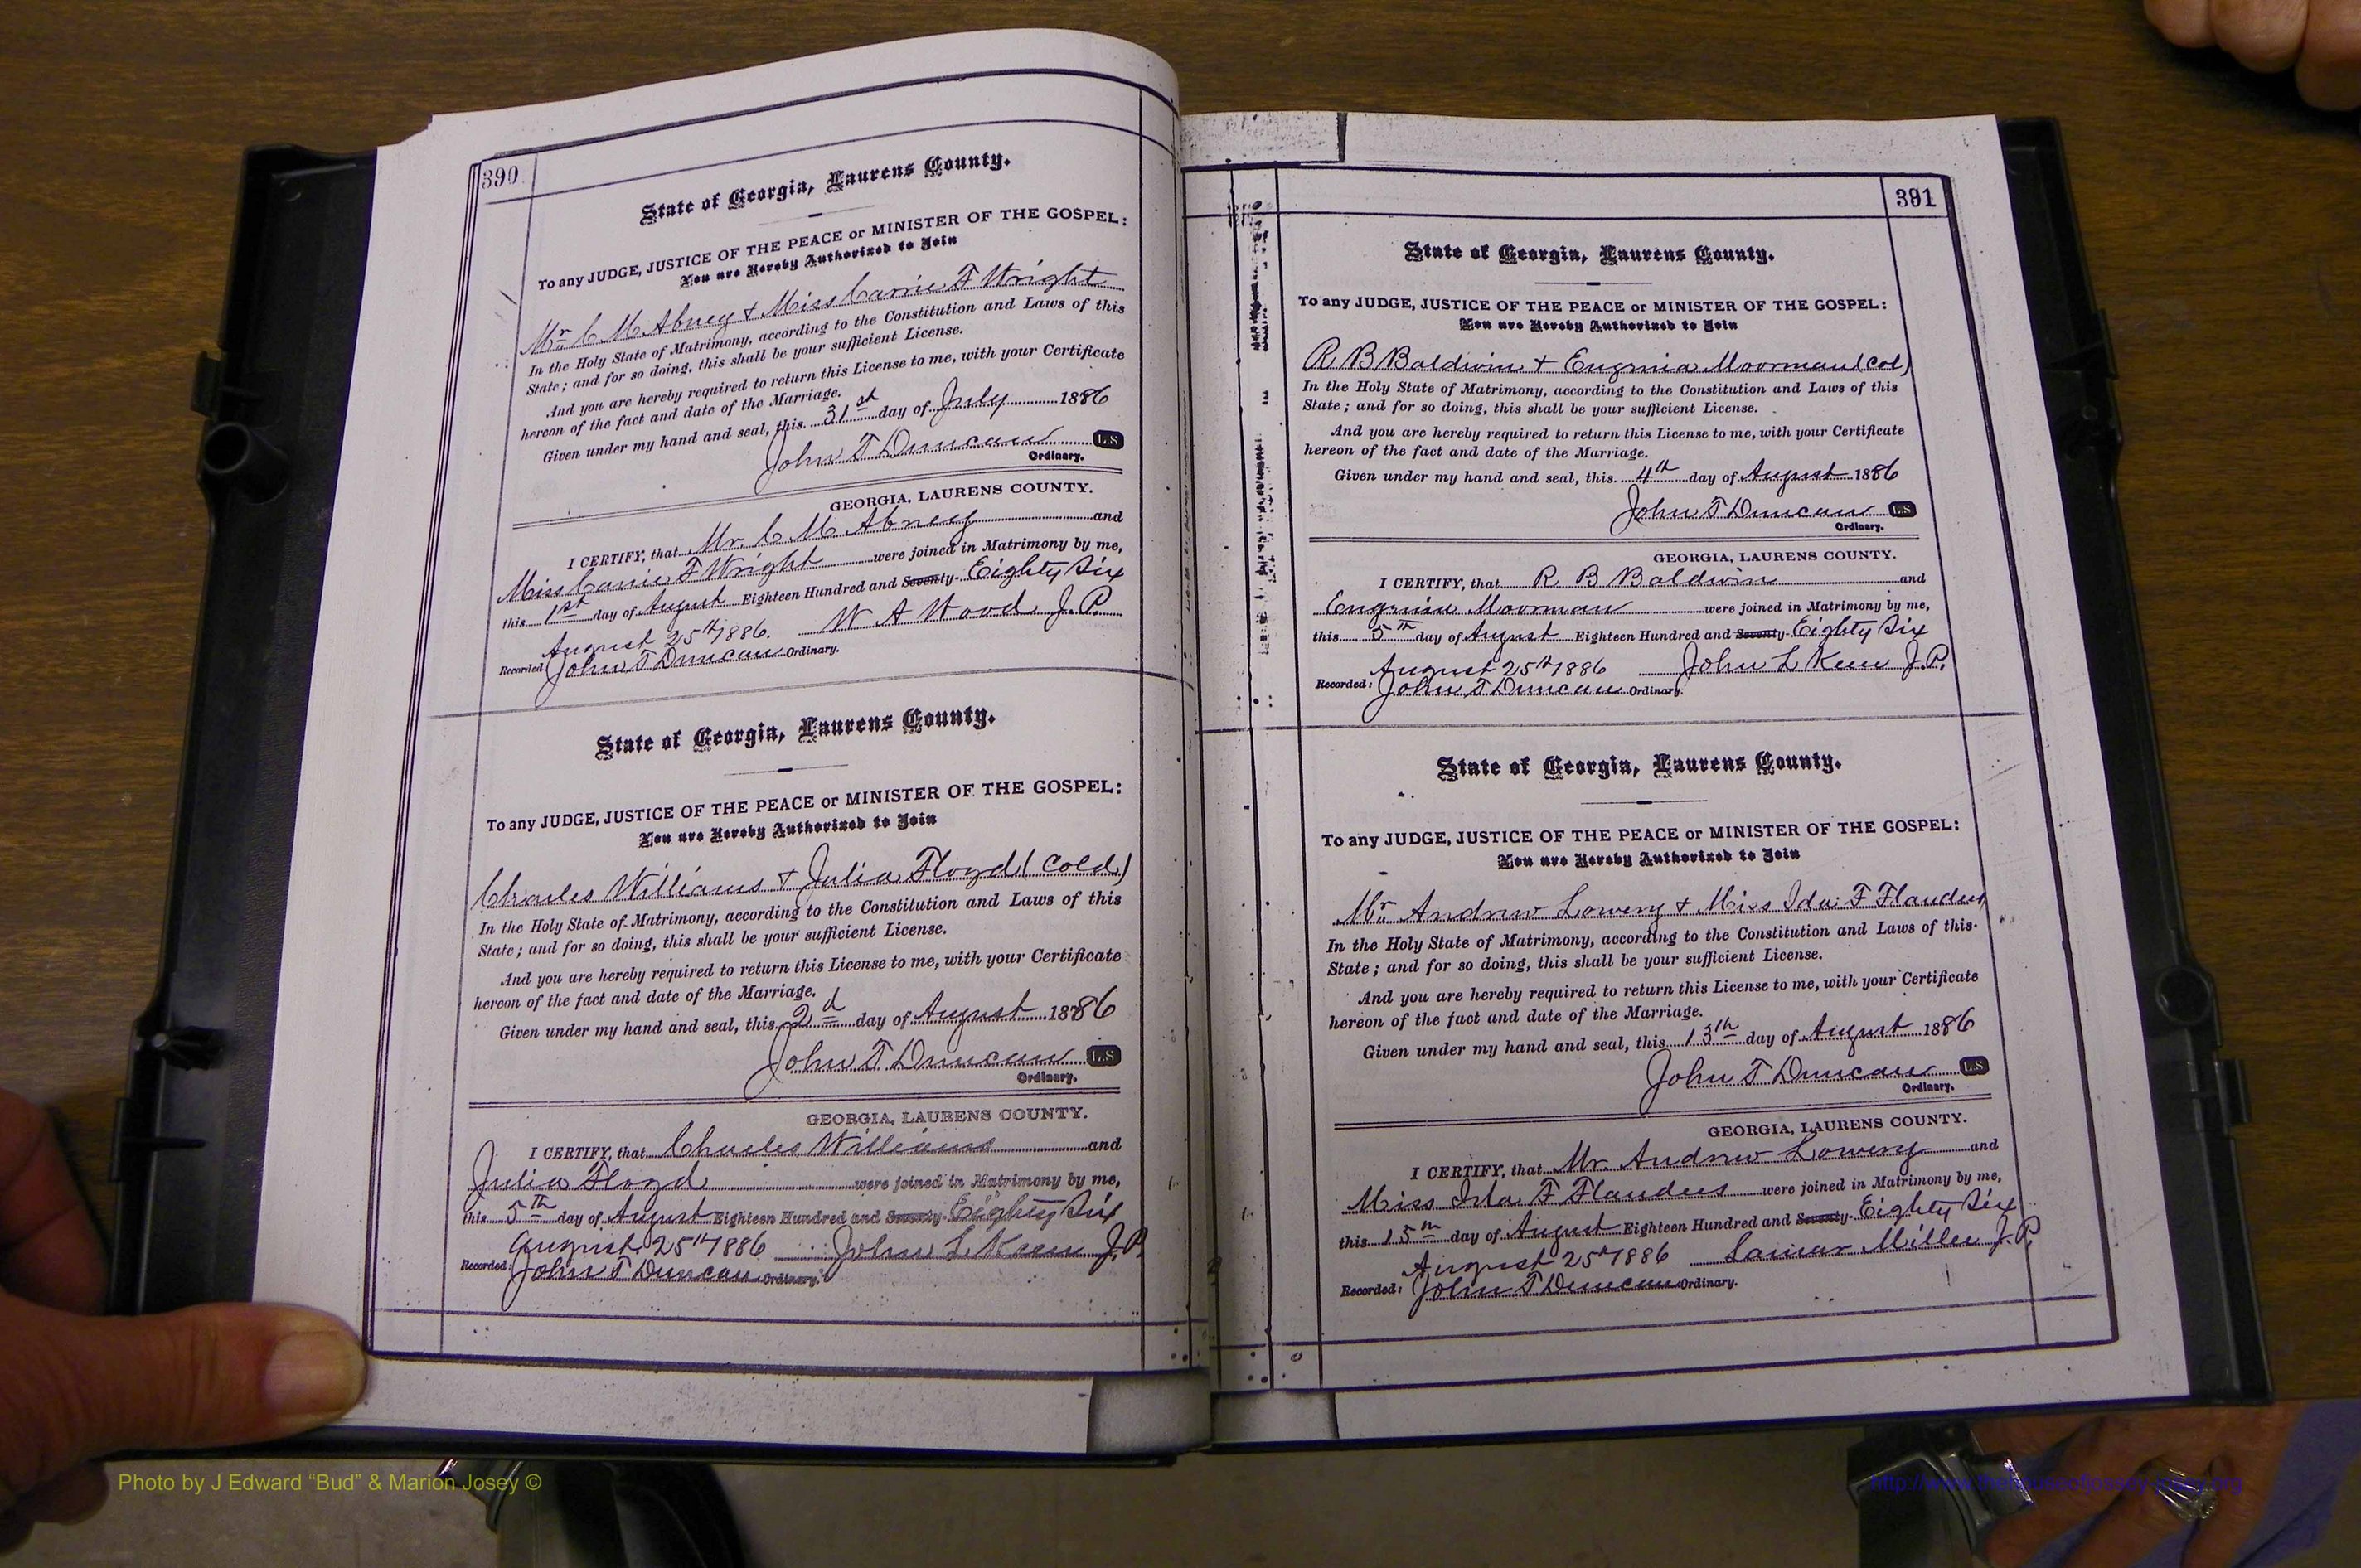 390
State of Georgia, Laurens County.
To any JUDGE, JUSTICE OF THE PEACE or MINISTER OF THE GOSPEL:
You are Hereby Authorized to Join
Mr. C M Abney & Miss Carrie F Wright
In the Holy State of Matrimony, according to the Constitution and Laws of this
State; and for so doing, this shall be your sufficient License.
And you are hereby required to return this License to me, with your Certificate
hereon of the fact and date of the Marriage.
Given under my hand and seal, this 31st day of July 1886
John T Duncan L.S
Ordinary.
GEORGIA, LAURENS COUNTY.
I CERTIFY, that Mr. C M Abney and
Miss Carrie F Wright were joined in Matrimony by me,
this 1st day of August Eighteen Hundred and Seventy- Eighty Six
August 25th 1886. W A Wood J.P.
Recorded John T Duncan Ordinary.
State of Georgia, Laurens County.
To any JUDGE, JUSTICE OF THE PEACE or MINISTER OF THE GOSPEL:
You are Hereby Authorized to Join
Charles Williams & Julia Floyd (Cold)
In the Holy State of Matrimony, according to the Constitution and Laws of this
State; and for so doing, this shall be your sufficient License.
And you are hereby required to return this License to me, with your Certificate
hereon of the fact and date of the Marriage.
Given under my hand and seal, this 2d day of August 1886
John T Duncan L.S
Ordinary.
GEORGIA, LAURENS COUNTY.
I CERTIFY, that Charles Williams and
Julia Floyd were joined in Matrimony by me,
this 5th day of August Eighteen Hundred and Seventy- Eighty Six
August 25th 1886 John L Keen J.P.
Recorded: John T Duncan Ordinary.
391
State of Georgia, Laurens County.
To any JUDGE, JUSTICE OF THE PEACE or MINISTER OF THE GOSPEL:
You are Hereby Authorized to Join
R B Baldwin & Eugenia Moorman (Col)
In the Holy State of Matrimony, according to the Constitution and Laws of this
State; and for so doing, this shall be your sufficient License.
And you are hereby required to return this License to me, with your Certificate
hereon of the fact and date of the Marriage.
Given under my hand and seal, this 4th day of August 1886
John T Duncan L.S
Ordinary.
GEORGIA, LAURENS COUNTY.
I CERTIFY, that R B Baldwin and
Eugenia Moorman were joined in Matrimony by me,
this 5th day of August Eighteen Hundred and Seventy- Eighty Six
August 25th 1886 John L Keen J.P.
Recorded: John T Duncan Ordinary.
State of Georgia, Laurens County.
To any JUDGE, JUSTICE OF THE PEACE or MINISTER OF THE GOSPEL:
You are Hereby Authorized to Join
Mr. Andrew Lowery & Miss Ida F Flanders
In the Holy State of Matrimony, according to the Constitution and Laws of this
State; and for so doing, this shall be your sufficient License.
And you are hereby required to return this License to me, with your Certificate
hereon of the fact and date of the Marriage.
Given under my hand and seal, this 13th day of August 1886
John T Duncan L.S
Ordinary.
GEORGIA, LAURENS COUNTY.
I CERTIFY, that Mr. Andrew Lowery and
Miss Ida F Flanders were joined in Matrimony by me,
this 15th day of August Eighteen Hundred and Seventy- Eighty Six
August 25th 1886 Lamar Miller J.P.
Recorded: John T Duncan Ordinary.
Photo by J Edward “Bud” & Marion Josey ©
http://www.thehouseofjossey-josey.org